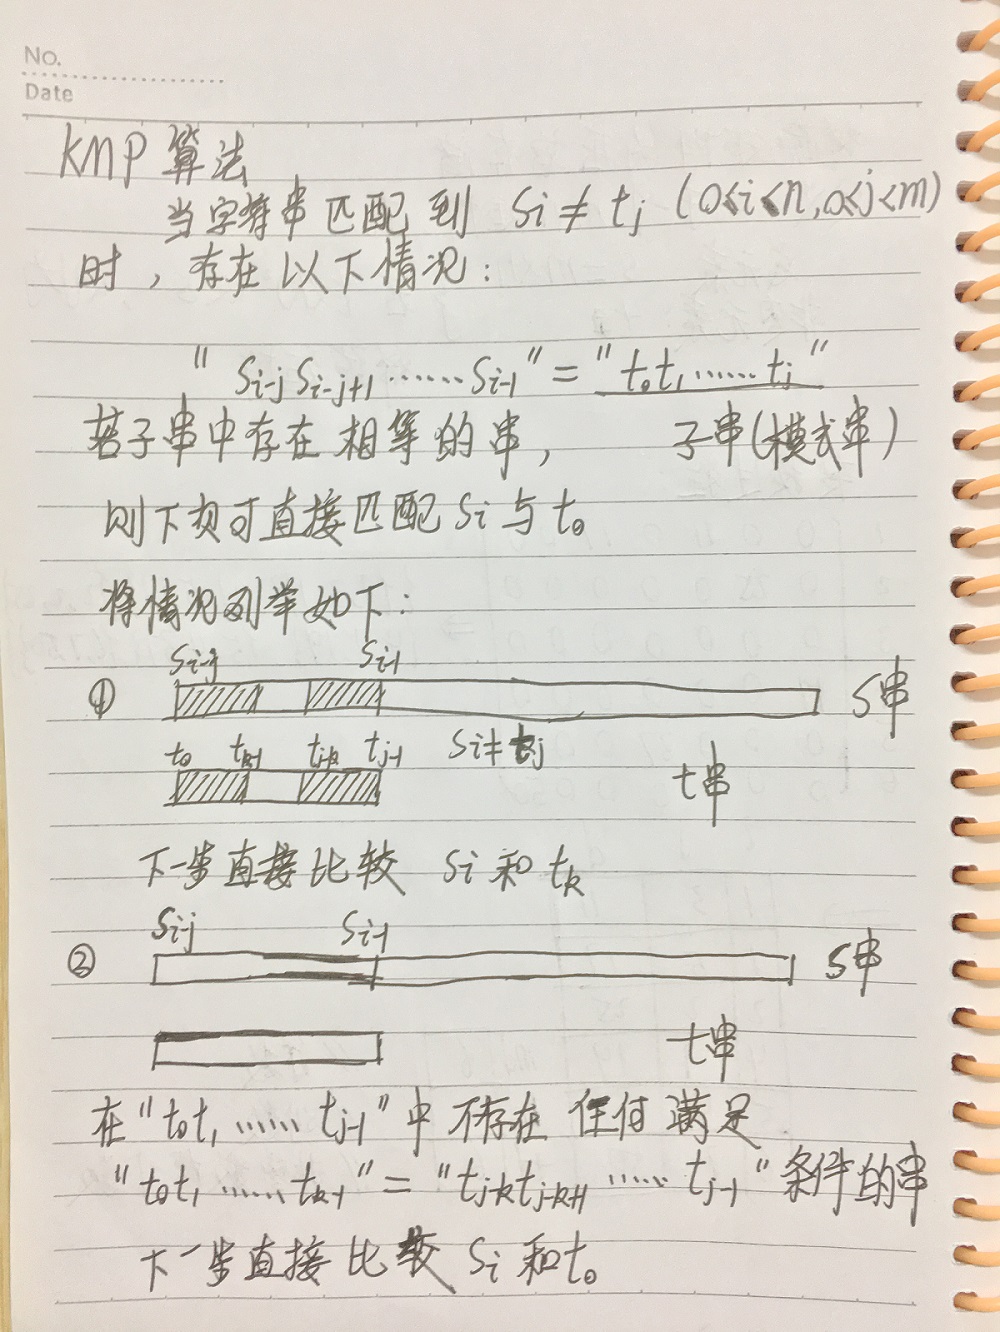 No.
Date
KMP 算法
当字符串匹配到 Si ≠ tj (0≤i<n, 0≤j<m)
时，存在以下情况：
"Si-j Si-j+1 ······ Si-1" = "t0t1 ······ tj"
若子串中存在相等的串， 子串(模式串)
则下次可直接匹配 Si 与 t0
将情况列举如下：
Si-j Si-1
① S串
t0 tk-1 tj-k tj-1 Si≠tj
t串
下一步直接比较 Si 和 tk
Si-j Si-1
② S串
t串
在"t0t1 ······ tj-1"中不存在任何满足
"t0t1 ······ tk-1" = "tj-ktj-k+1 ······ tj-1"条件的串
下一步直接比较 Si 和 t0